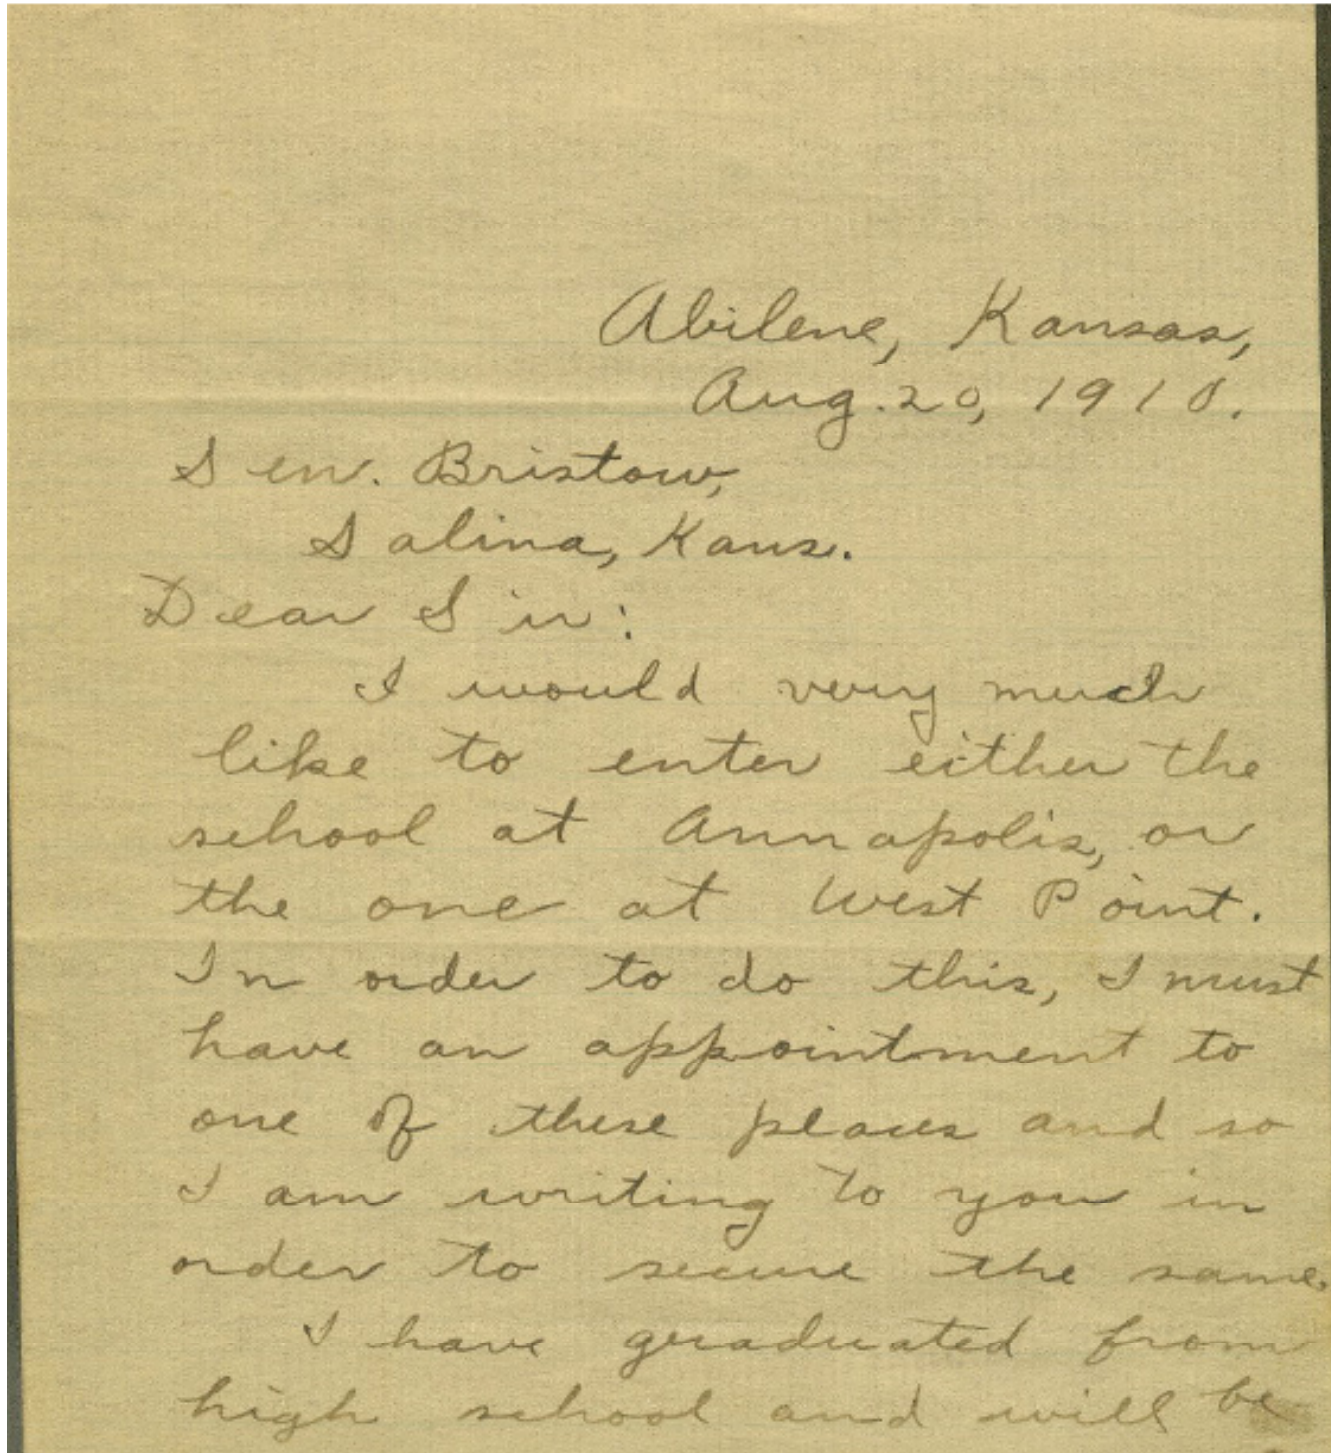 Abilene, Kansas,
Aug. 20, 1910.
Sen. Bristow,
Salina, Kans.
Dear Sir:
I would very much
like to enter either the
school at Annapolis, or
the one at West Point.
In order to do this, I must
have an appointment to
one of these places and so
I am writing to you in
order to secure the same.
I have graduated from
high school and will be